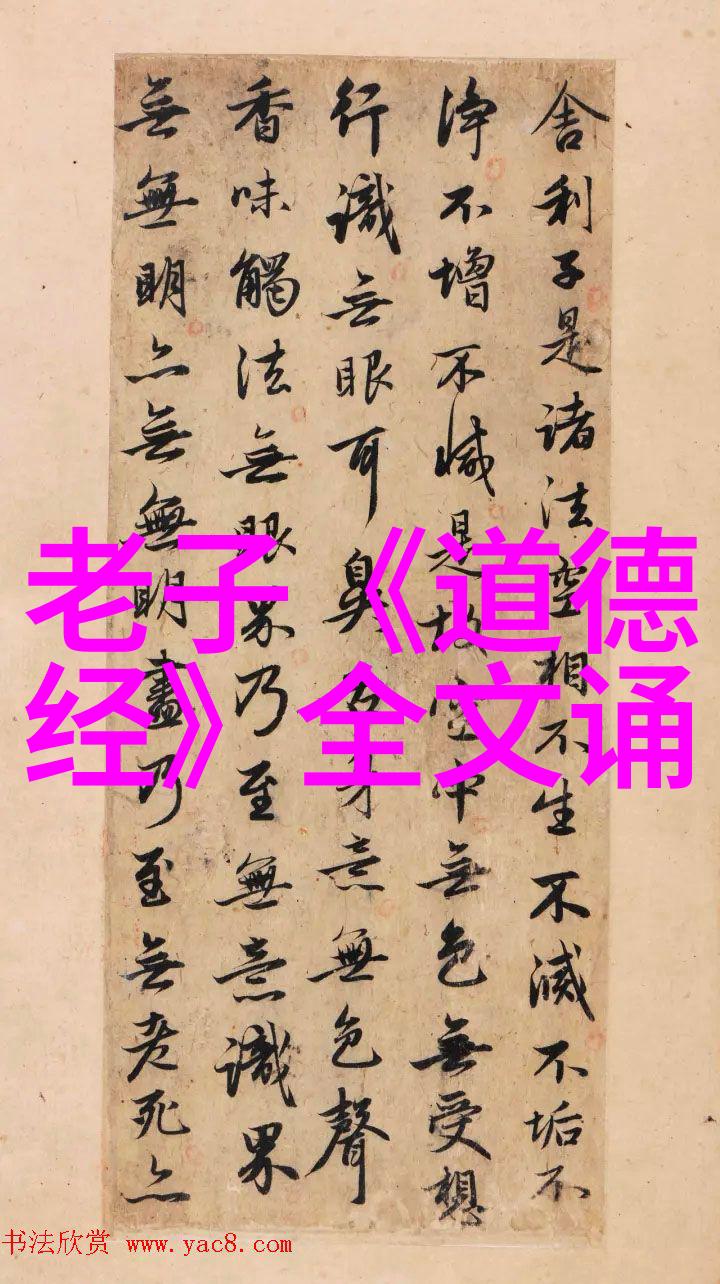 舍利子是諸法空相不生不滅不垢不
淨不增不減是故空中無色無受想
行識無眼耳鼻舌身意無色聲
香味觸法無眼界乃至無意識界
無無明亦無無明盡乃至無老死亦
老子《道德
经》全文诵
书法欣赏 www.yac8.com